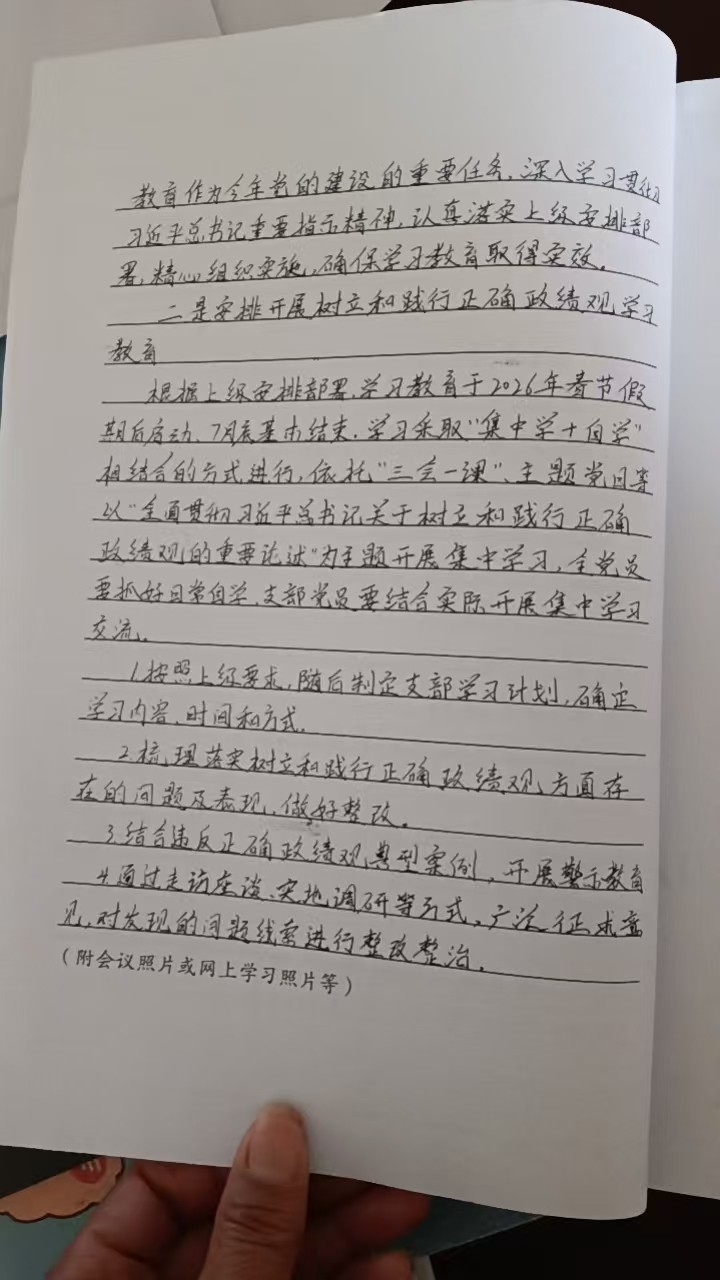 教育作为今年党的建设的重要任务,深入学习贯彻
习近平总书记重要指示精神,认真落实上级安排部
署,精心组织实施,确保学习教育取得实效。
二是安排开展树立和践行正确政绩观学习
教育
根据上级安排部署,学习教育于2026年春节假
期后启动、7月底基本结束.学习采取"集中学+自学"
相结合的方式进行,依托"三会一课"、主题党日等
以"全面贯彻习近平总书记关于树立和践行正确
政绩观的重要论述"为主题开展集中学习,全党员
要抓好日常自学,支部党员要结合实际开展集中学习
交流。
1.按照上级要求,随后制定支部学习计划,确定
学习内容、时间和方式.
2.梳理落实树立和践行正确政绩观方面存
在的问题及表现,做好整改。
3.结合违反正确政绩观典型案例,开展警示教育
4.通过走访座谈、实地调研等方式,广泛征求意
见,对发现的问题线索进行整改整治.
(附会议照片或网上学习照片等)